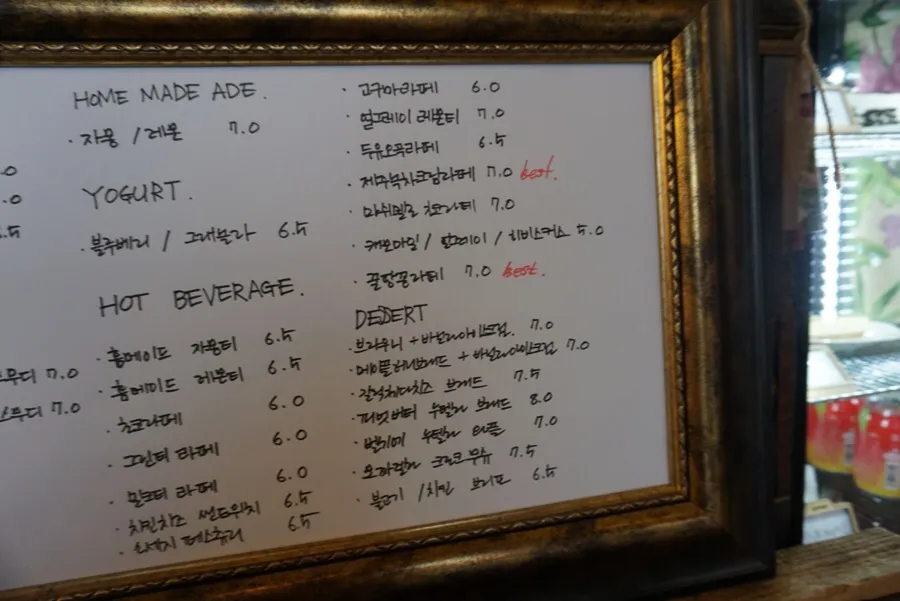 HOME MADE ADE.
· 자몽 / 레몬 7.0
YOGURT.
· 블루베리 / 그래놀라 6.5
HOT BEVERAGE.
· 홈메이드 자몽티 6.5
· 홈메이드 레몬티 6.5
· 초코라떼 6.0
· 그린티 라떼 6.0
· 밀크티 라떼 6.0
· 치킨치즈 샌드위치 6.5
· 소세지 페스츄리 6.5
스무디 7.0
스무디 7.0
· 고구마라떼 6.0
· 얼그레이 레몬티 7.0
· 두유오곡라떼 6.5
· 제주녹차크림라떼 7.0 best.
· 마쉬멜로 초코라떼 7.0
· 캐모마일 / 얼그레이 / 히비스커스 5.0
· 꿀땅콩라떼 7.0 best.
DEDERT
· 브라우니 + 바닐라아이스크림. 7.0
· 메이플허니브레드 + 바닐라아이스크림 7.0
· 갈릭체다치즈 브레드 7.5
· 피넛버터 누텔라 브레드 8.0
· 벨기에 누텔라 와플 7.0
· 크로크무슈 7.5
· 불고기 / 치킨 브리또 6.5